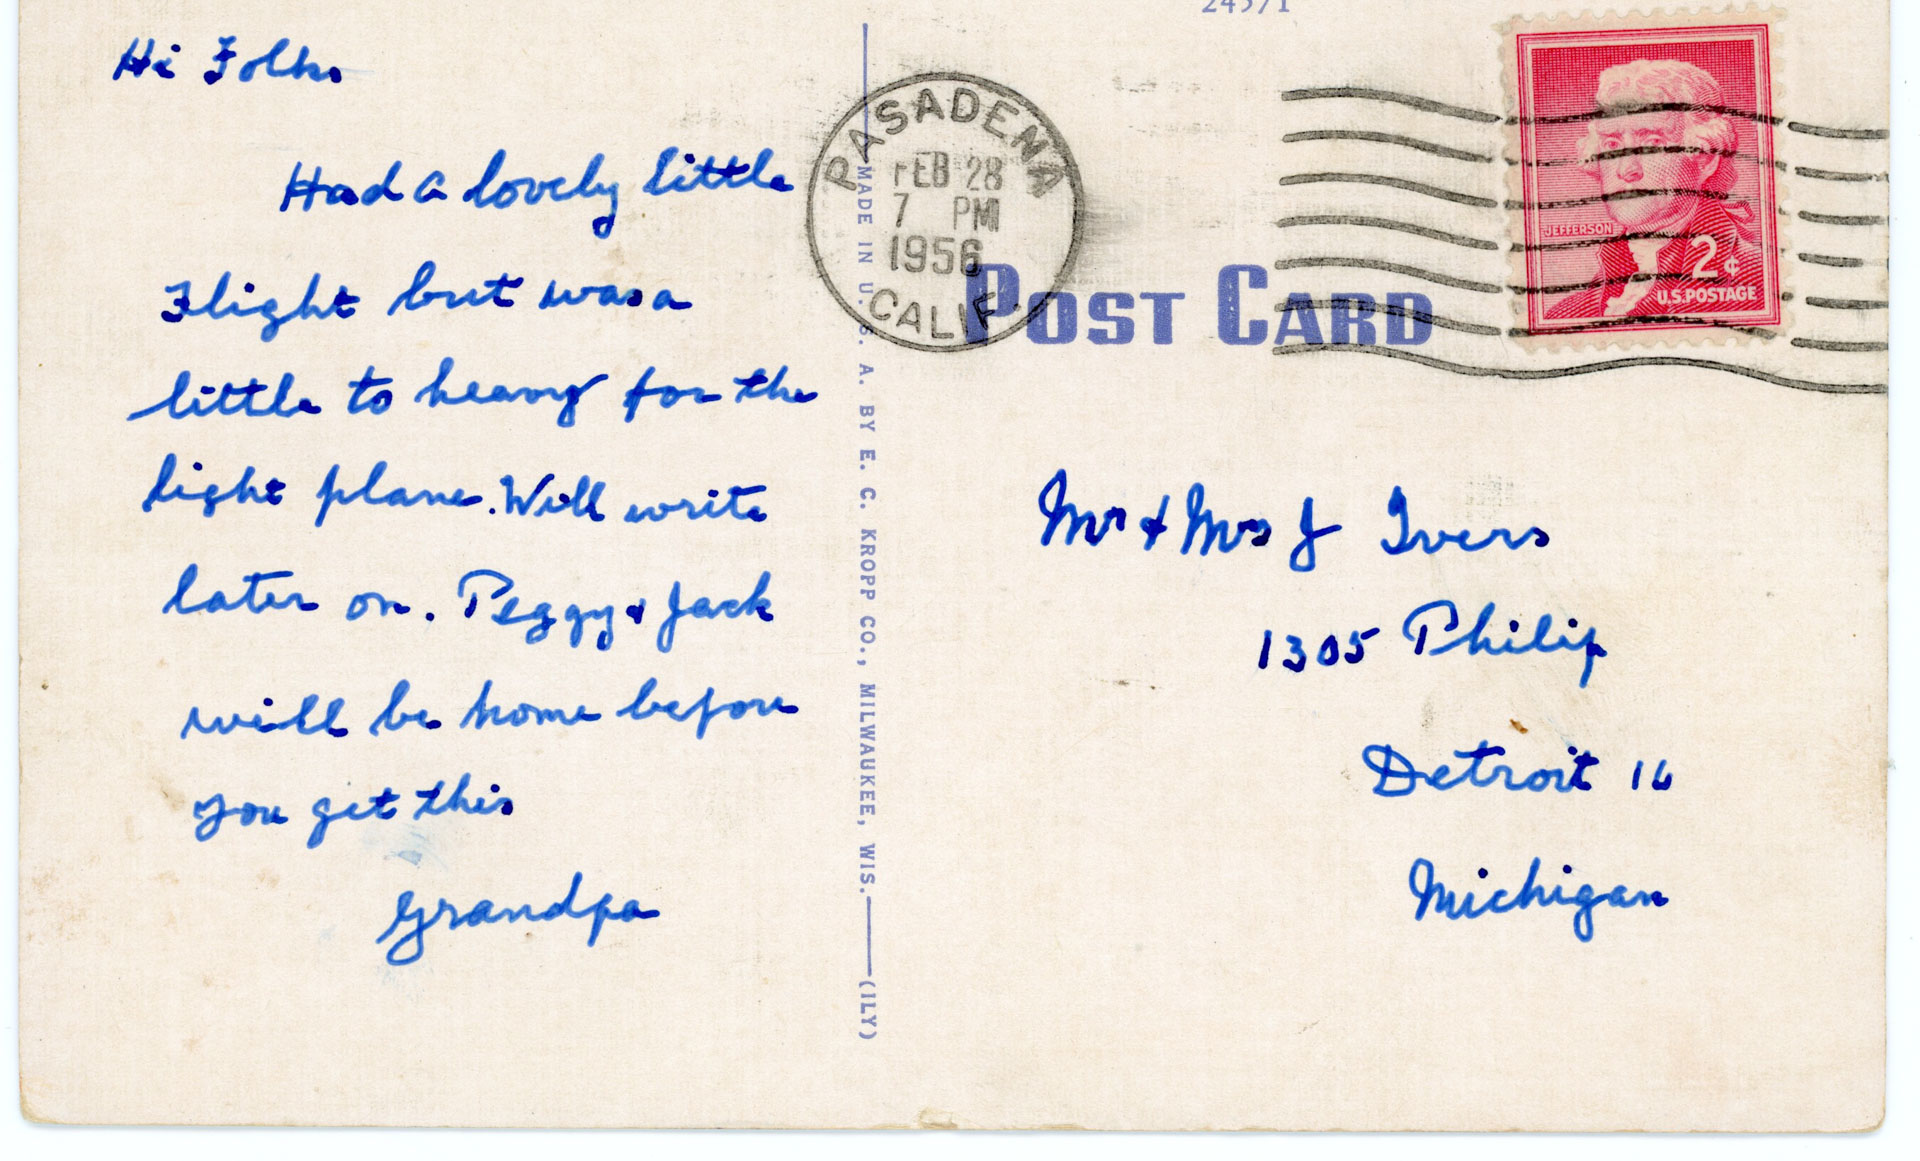 Hi Folks
Had a lovely little
Flight but was a
little to heavy for the
light plane. Will write
later on. Peggy & Jack
will be home before
you get this
Grandpa
MADE IN U. S. A. BY E. C. KROPP CO., MILWAUKEE, WIS. (ILY)
PASADENA
FEB 28
7 PM
1956
CALIF.
POST CARD
JEFFERSON
2¢
U.S. POSTAGE
Mr & Mrs J Ivers
1305 Philip
Detroit 16
Michigan